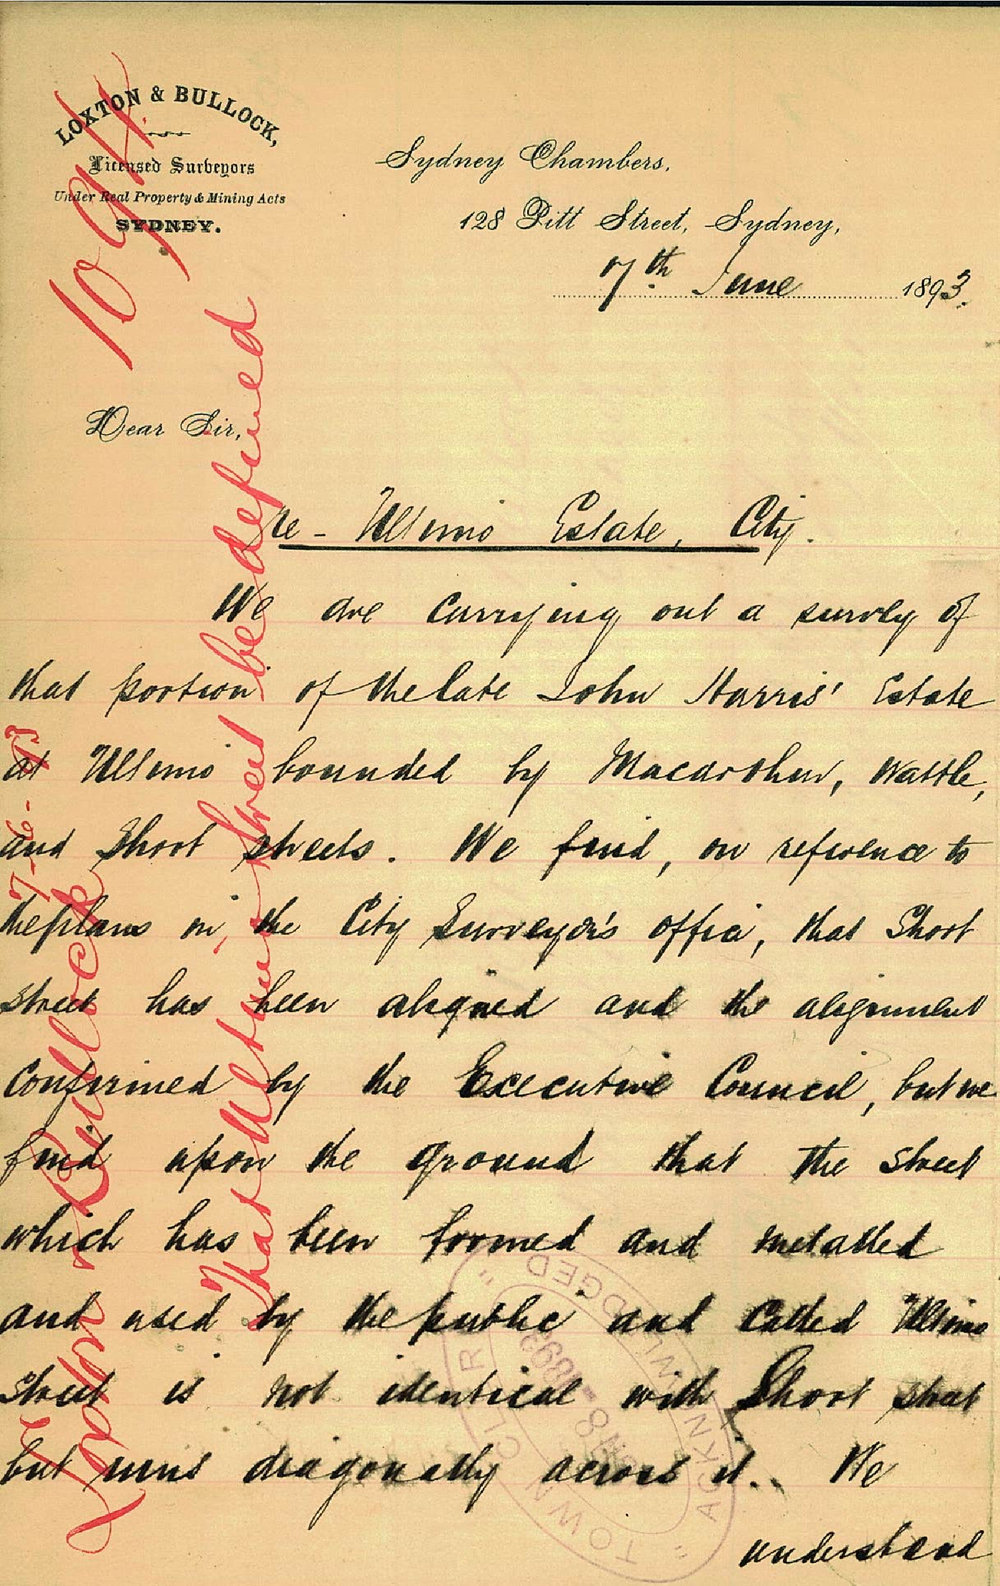 LOXTON & BULLOCK,
Licensed Surveyors
Under Real Property & Mining Acts
SYDNEY.
Sydney Chambers,
128 Pitt Street, Sydney,
7th June 1893.
Dear Sir,
re - Ultimo Estate, City.
We are carrying out a survey of
that portion of the late John Harris' Estate
at Ultimo bounded by Macarthur, Wattle,
and Short streets. We find, on reference to
the plans in the City Surveyor's office, that Short
street has been aligned and the alignment
confirmed by the Executive Council, but we
find upon the ground that the street
which has been formed and metalled
and used by the public and called Ultimo
street is not identical with Short street
but runs diagonally across it. We
understand
Loxton & Bullock 7-6-93
That Ultimo Street be defined
1094
"TOWN CLERK"
"ACKNOWLEDGED"